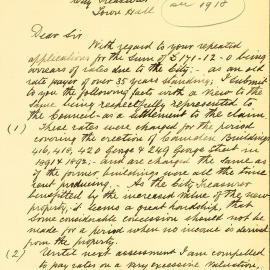 City Treasurer
Town Hall
1918
Dear Sir
With regard to your repeated
applications for the Sum of £171-12-0 being
arrears of rates due to the City; - as an old
rate payer of over 35 years standing I submit
to you the following facts with a view to the
same being respectfully represented to
the Council as a settlement to the claim
(1) These rates were charged for the period
covering the erection of Buildings
416, 418, 420 George & 249 George Street in
1891 & 1892; - and are charged the same as
if the former buildings were all the time
rent producing. - As the City Treasurer
benefitted by the increased value of the new
property, it seems a great hardship, that
some considerable concession should not be
made for a period when no income is derived
from the property.
(2) Until next assessment I am compelled
to pay rates on a very excessive valuation,